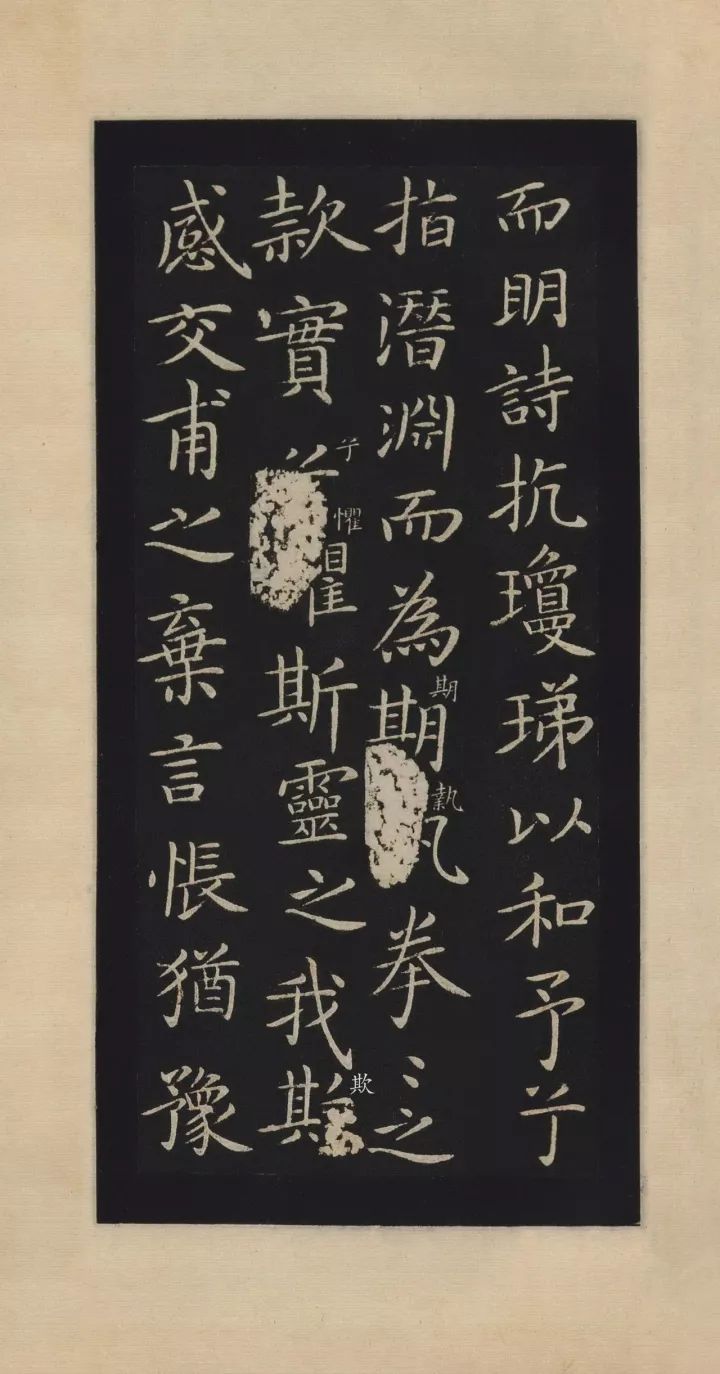 而明詩抗瓊珶以和予兮
指潛淵而為期執拳〻之
期
執
款實兮懼斯靈之我欺
兮
懼
欺
感交甫之棄言悵猶豫